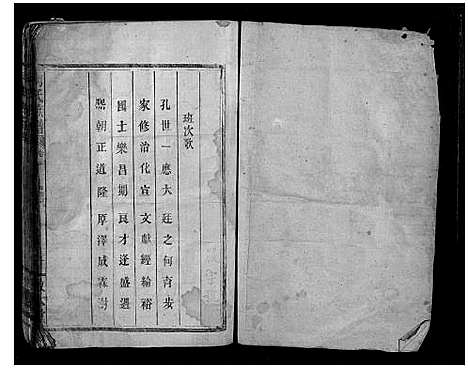 班次歌
孔世一應大 廷之向育步
家修治化宣 文獻經綸裕
國士樂昌期 良才逢盛遇
熙朝正道隆 厚澤咸霖澍